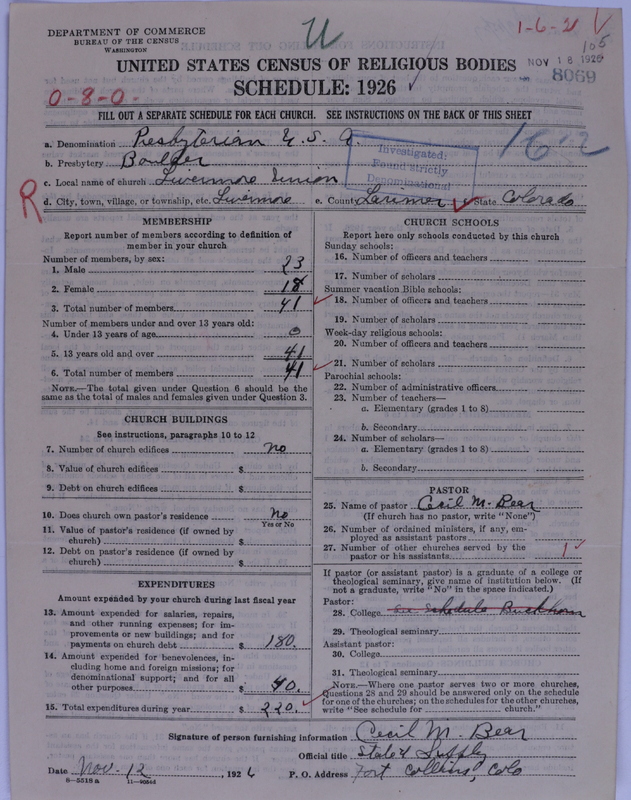 DEPARTMENT OF COMMERCE
BUREAU OF THE CENSUS
WASHINGTON
U
1-6-21 V
105
NOV 18 1926
8069
UNITED STATES CENSUS OF RELIGIOUS BODIES
SCHEDULE: 1926
0-8-0-
FILL OUT A SEPARATE SCHEDULE FOR EACH CHURCH. SEE INSTRUCTIONS ON THE BACK OF THIS SHEET
a. Denomination Presbyterian U. S. A.
b. Presbytery Boulder
c. Local name of church Livermore Union
Investigated:
Found strictly
Denominational
R
d. City, town, village, or township, etc. Livermore e. County Larimer State Colorado
MEMBERSHIP
Report number of members according to definition of
member in your church
Number of members, by sex:
1. Male 23
2. Female 18
3. Total number of members 41
Number of members under and over 13 years old:
4. Under 13 years of age 0
5. 13 years old and over 41
6. Total number of members 41
NOTE.—The total given under Question 6 should be the
same as the total of males and females given under Question 3.
CHURCH BUILDINGS
See instructions, paragraphs 10 to 12
7. Number of church edifices no
8. Value of church edifices $
9. Debt on church edifices $
10. Does church own pastor's residence no
Yes or No
11. Value of pastor's residence (if owned by
church) $
12. Debt on pastor's residence (if owned by
church) $
EXPENDITURES
Amount expended by your church during last fiscal year
13. Amount expended for salaries, repairs,
and other running expenses; for im-
provements or new buildings; and for
payments on church debt $ 180.
14. Amount expended for benevolences, in-
cluding home and foreign missions; for
denominational support; and for all
other purposes $ 40.
15. Total expenditures during year $ 220.
CHURCH SCHOOLS
Report here only schools conducted by this church
Sunday schools:
16. Number of officers and teachers
17. Number of scholars
Summer vacation Bible schools:
18. Number of officers and teachers
19. Number of scholars
Week-day religious schools:
20. Number of officers and teachers
21. Number of scholars
Parochial schools:
22. Number of administrative officers
23. Number of teachers—
a. Elementary (grades 1 to 8)
b. Secondary
24. Number of scholars—
a. Elementary (grades 1 to 8)
b. Secondary
PASTOR
25. Name of pastor Cecil M. Bear
(If church has no pastor, write "None")
26. Number of ordained ministers, if any, em-
ployed as assistant pastors
27. Number of other churches served by the
pastor or his assistants 1
If pastor (or assistant pastor) is a graduate of a college or
theological seminary, give name of institution below. (If
not a graduate, write "No" in the space indicated.)
Pastor:
28. College schedule Buckhorn
29. Theological seminary
Assistant pastor:
30. College
31. Theological seminary
NOTE.—Where one pastor serves two or more churches,
Questions 28 and 29 should be answered only on the schedule
for one of the churches; on the schedules for the other churches,
write "See schedule for church."
Signature of person furnishing information Cecil M. Bear
Official title Stated Supply
Date Nov. 12, 1926 P. O. Address Fort Collins, Colo
8-5518 a